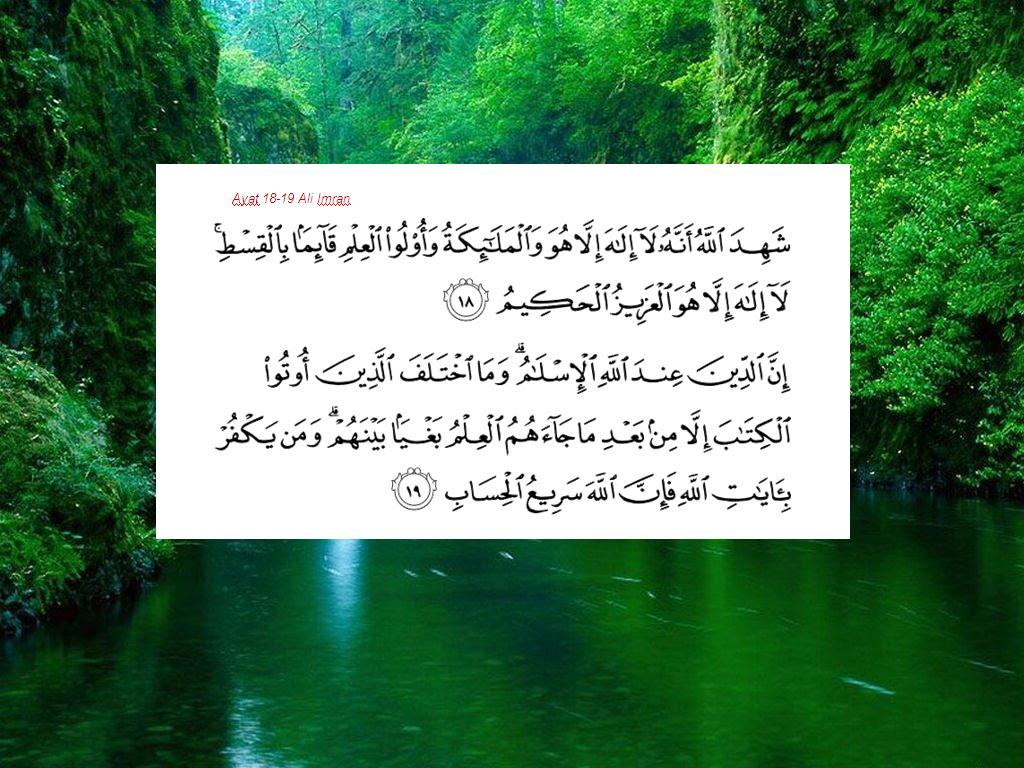 Ayat 18-19 Ali Imran
شَهِدَ ٱللَّهُ أَنَّهُۥ لَآ إِلَٰهَ إِلَّا هُوَ وَٱلْمَلَٰٓئِكَةُ وَأُو۟لُوا۟ ٱلْعِلْمِ قَآئِمًۢا بِٱلْقِسْطِ ۚ
لَآ إِلَٰهَ إِلَّا هُوَ ٱلْعَزِيزُ ٱلْحَكِيمُ ١٨
إِنَّ ٱلدِّينَ عِندَ ٱللَّهِ ٱلْإِسْلَٰمُ ۗ وَمَا ٱخْتَلَفَ ٱلَّذِينَ أُوتُوا۟
ٱلْكِتَٰبَ إِلَّا مِنۢ بَعْدِ مَا جَآءَهُمُ ٱلْعِلْمُ بَغْيًۢا بَيْنَهُمْ ۗ وَمَن يَكْفُرْ
بِـَٔايَٰتِ ٱللَّهِ فَإِنَّ ٱللَّهَ سَرِيعُ ٱلْحِسَابِ ١٩